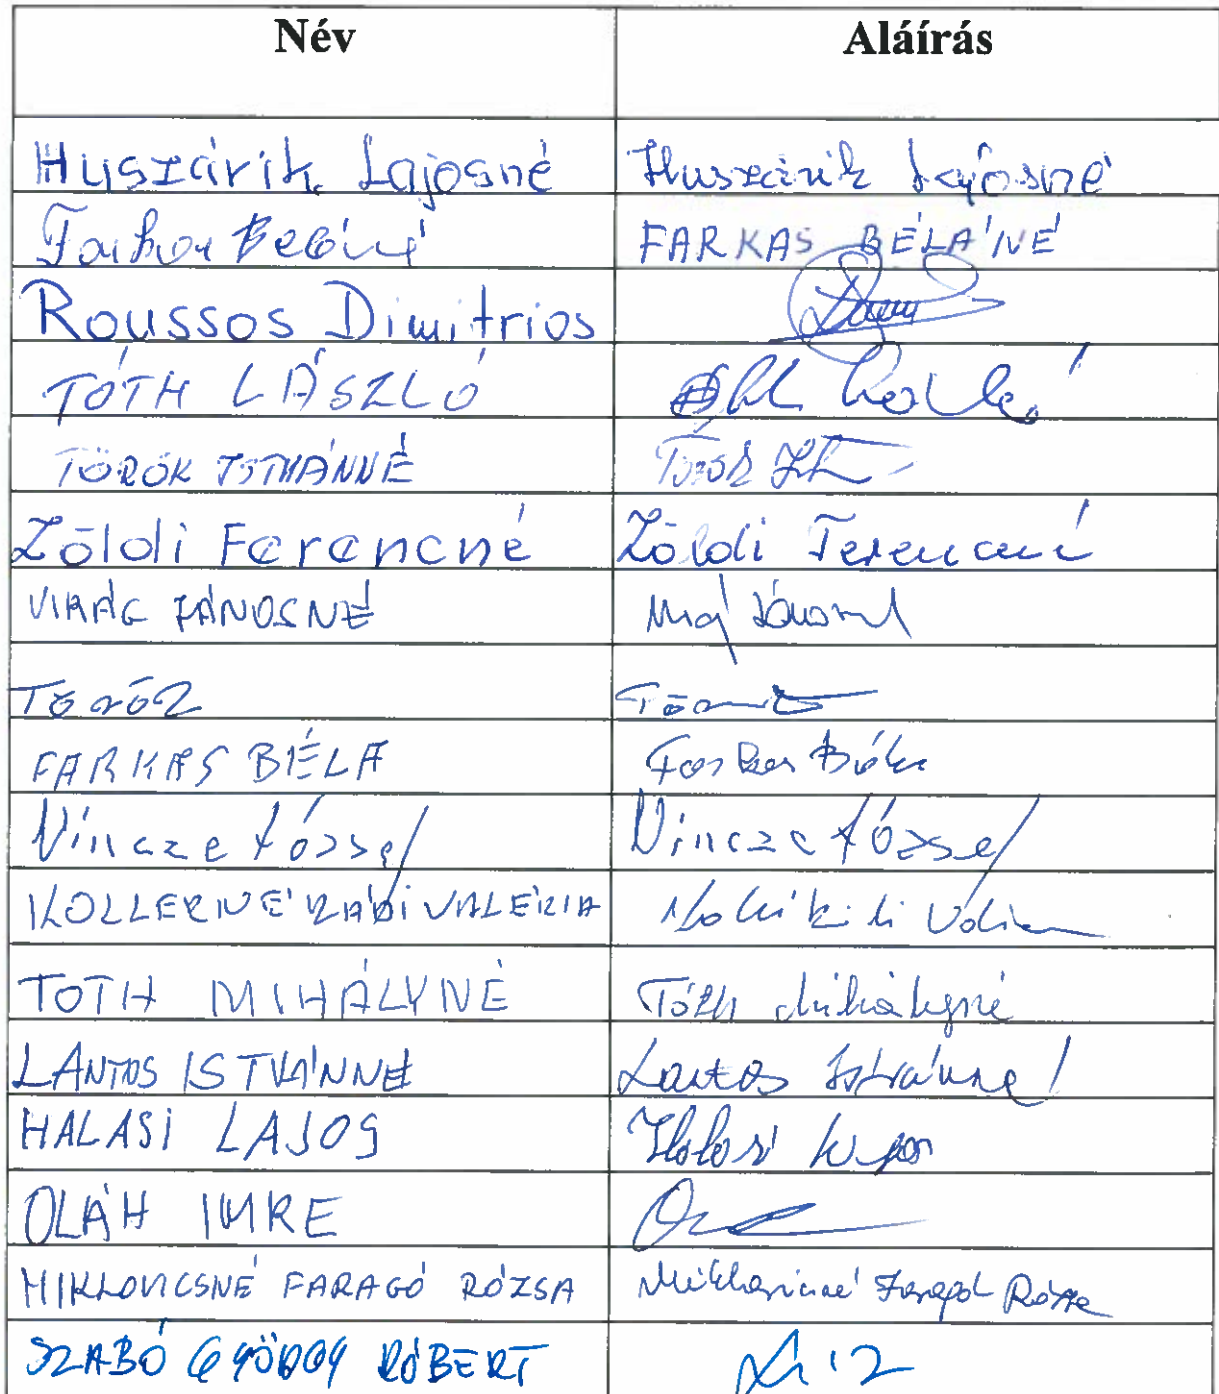 Név Aláírás
Huszárik Lajosné Huszárik Lajosné
Farkas Béláné FARKAS BÉLÁNÉ
Roussos Dimitrios
TÓTH LÁSZLÓ
TÖRÖK ISTVÁNNÉ Török
Zöldi Ferencné Zöldi Ferencné
VIRÁG JÁNOSNÉ
FARKAS BÉLA Farkas Béla
Vincze József Vincze József
KOLLERNÉ VALÉRIA
TOTH MIHÁLYNÉ Tóth Mihályné
LANTOS ISTVÁNNÉ Lantos Istvánné
HALASI LAJOS Halasi Lajos
OLÁH IMRE
MIKLOVICSNÉ FARAGÓ RÓZSA Miklovicsné Faragó Rózsa
SZABÓ GYÖRGY RÓBERT